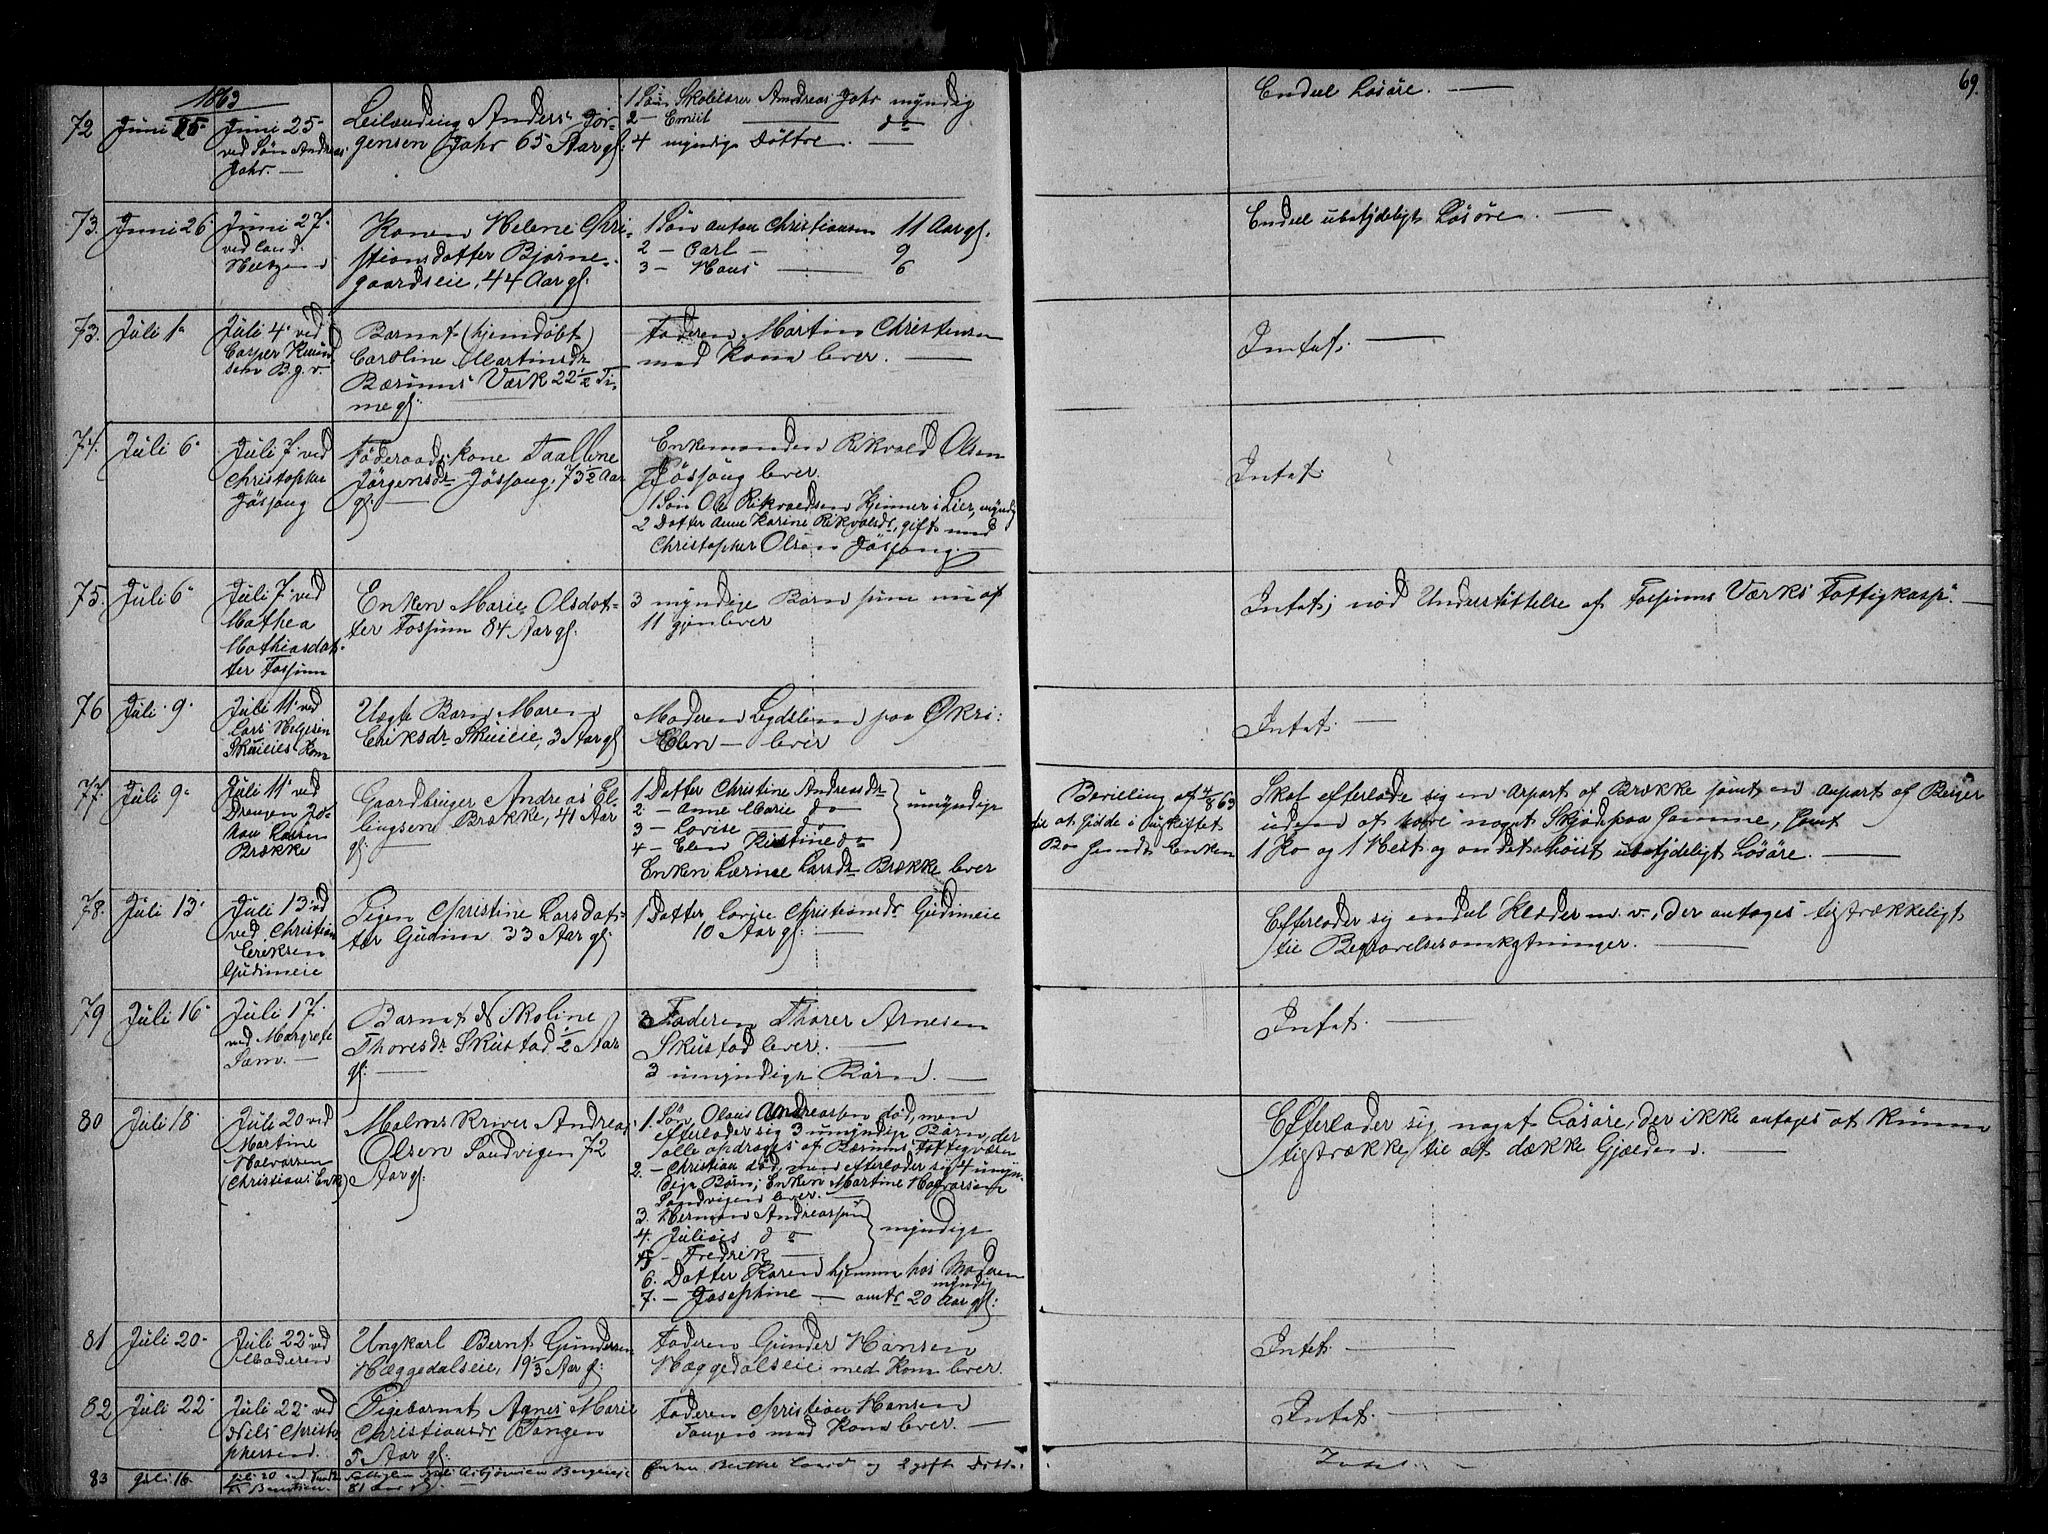 69.
1863
72
Juni 25
Juni 25
ved Søn Andreas
Jahr. —
Leilænding Anders Jør-
gensen Jahr 65 Aar gl.
1 Søn Skolelærer Andreas Jahr myndig
2 — Emiil — do
4 myndige Døttre. —
Endeel Løsøre. —
73.
Juni 26
Juni 27
ved Lænd.
Konen Helene Chri-
stiansdatter Bjørne-
gaardseie, 44 Aar gl.
1 Søn Anton Christiansen 11 Aar gl.
2 — Carl — 9
3 — Hans — 6
Endeel ubetydeligt Løsøre. —
73.
Juli 1
Juli 4 ved
Casper
B. g. v.
Barnet (hjemdøbt)
Caroline Martinsdr
Bærums Værk 22½ Ti-
me gl.
Faderen Martin Christensen
med Kone lever. —
Intet. —
74.
Juli 6
Juli 7 ved
Christopher
Jøssong
Føderaadskone Taallene
Jørgensdr Jøssong, 73½ Aar
gl. —
Enkemanden Rikvald Olsen
Jøssong lever
1 Søn Ole Rikvaldsen Hjemmer i Lier, myndg
2 Datter Anne Karine Rikvalsdr, gift med
Christopher Olsen Jøssong. —
Intet.
75.
Juli 6
Juli 7 ved
Mathea
Mathiasdat-
ter Fossum
Enken Marie Olsdat-
ter Fossum 84 Aar gl.
3 myndige Børn som nu af
11 gjenlever
Intet; nød Understøttelse af Fossums Værks Fattigkasse. —
76
Juli 9
Juli 11 ved
Lars Helgesen
Skuieies Kone
Uægte Barn Maren
Eriksdr Skuieie, 3 Aar gl.
Moderen Lydslein paa Økri:
Elen — lever
Intet. —
77.
Juli 9
Juli 11 ved
Drengen Jo-
han Larsen
Brække
Gaardbruger Andreas El-
lingsen Brække, 41 Aar
gl. —
1 Datter Christine Andreasdr
2 — Anne Marie do
3 — Lovise do
4 — Elen Kirstine do
umyndige
Enken Lærine Larsdr Brække lever
Bevilling af 4/8 63
til at sidde i uskiftet
Bo sendt Enken
Skal efterlade sig en Aspart af Brække samt en Aspart af Berger
uden at have noget Skjøde paa samme, samt
1 Ko og 1 Hest og andet høist ubetydeligt Løsøre. —
78.
Juli 13
Juli 13 vd
ved Christian
Eriksen
Gudimeie
Pigen Christine Larsdat-
ter Gudim 33 Aar gl.
1 Datter Lovise Christiansdr Gudimeie
10 Aar gl. —
Efterlader sig endel Klæder m. v., der antages tilstrækkeligt
til Begravelsesomkostninger. —
79
Juli 16
Juli 17
ved Margrete
Sam. —
Barnet Nikoline
Thoresdr Skustad ½ Aar
gl. —
Faderen Thorer Arnesen
Skustad lever. —
3 umyndige Børn. —
Intet. —
80
Juli 18
Juli 20 ved
Martine
Halvorsen
(Christians Enke)
Malmskriver Andreas
Olsen Sandvigen 72
Aar gl.
1. Søn Olaus Andreassen død, men
efterlader sig 3 umyndige Børn, der
alle opdrages af Bærums Fattigvæsen
2. — Christian død, men efterlader sig 4 umyn-
dige Børn; Enken Martine Halvorsen
Sandvigen lever. —
3. Herman Andreassen
4. Julius do
5 — Fredrik —
myndige
6. Datter Karen hjemme hos Moderen
myndig
7. — Josephine — omtr 20 Aar gl.
Efterlader sig noget Løsøre, der ikke antages at kunne
tilstrække til at dække Gjælden. —
81
Juli 20
Juli 22 ved
Moderen
Ungkarl Bernt Gundersen
Hæggedalseie, 19⅓ Aar gl.
Faderen Gunder Hansen
Hæggedalseie med Kone lever.
Intet. —
82
Juli 22
Juli 22 ved
Nils Christo-
phersen.
Pigebarnet Agnes Marie
Christiansdr Tangen
5 Aar gl.
Faderen Christian Hansen
Tangen med Kone lever. —
Intet. —
83
Juli 16
Juli 20 ved
81 Aar gl.
Enken Berthe Larsd og 2 gifte Døttre
Intet. —